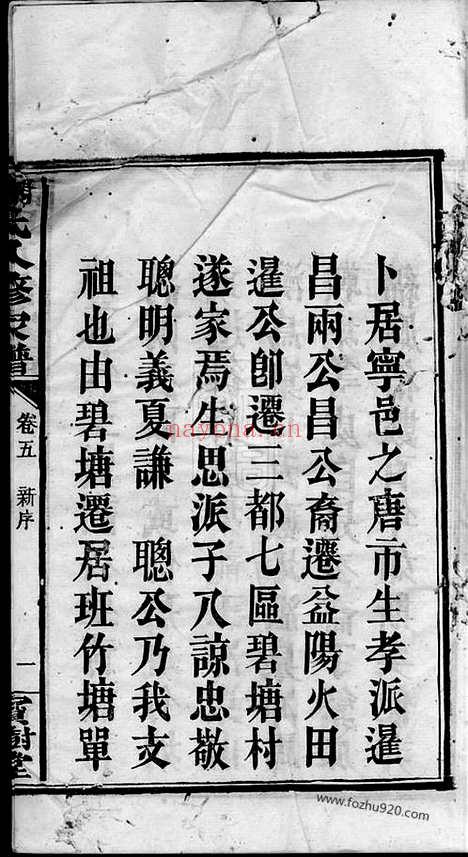 卜居寧邑之唐市生孝派暹
昌兩公昌公裔遷益陽火田
暹公卽遷三都七區碧塘村
遂家焉生思派子八諒忠敬
聰明義夏謙　聰公乃我支
祖也由碧塘遷居班竹塘單
謝氏八修家譜
卷五　新序
一
寶樹堂
nayona.cn
www.fozhu920.com